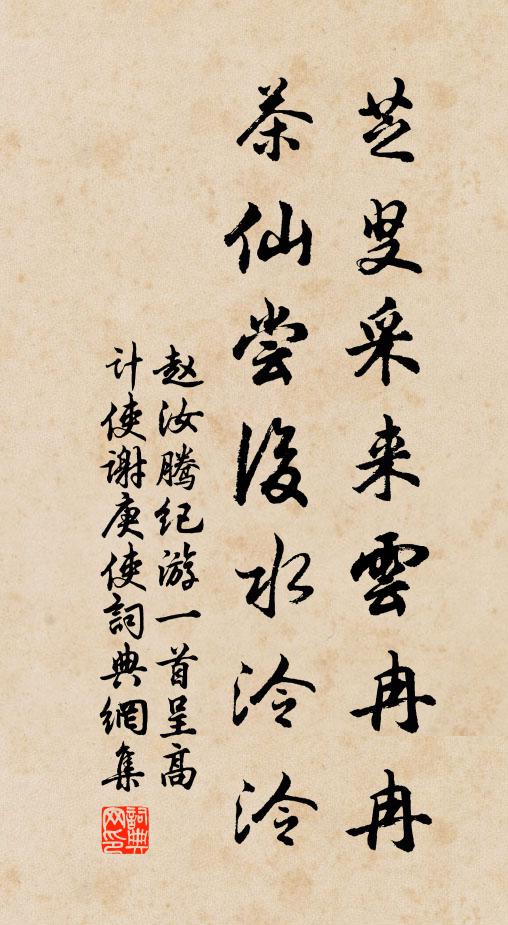 芝叟采来雲冉冉
茶仙尝後水泠泠
赵汝腾纪游一首呈高
计使谢庚使詞典網集
詞典网印